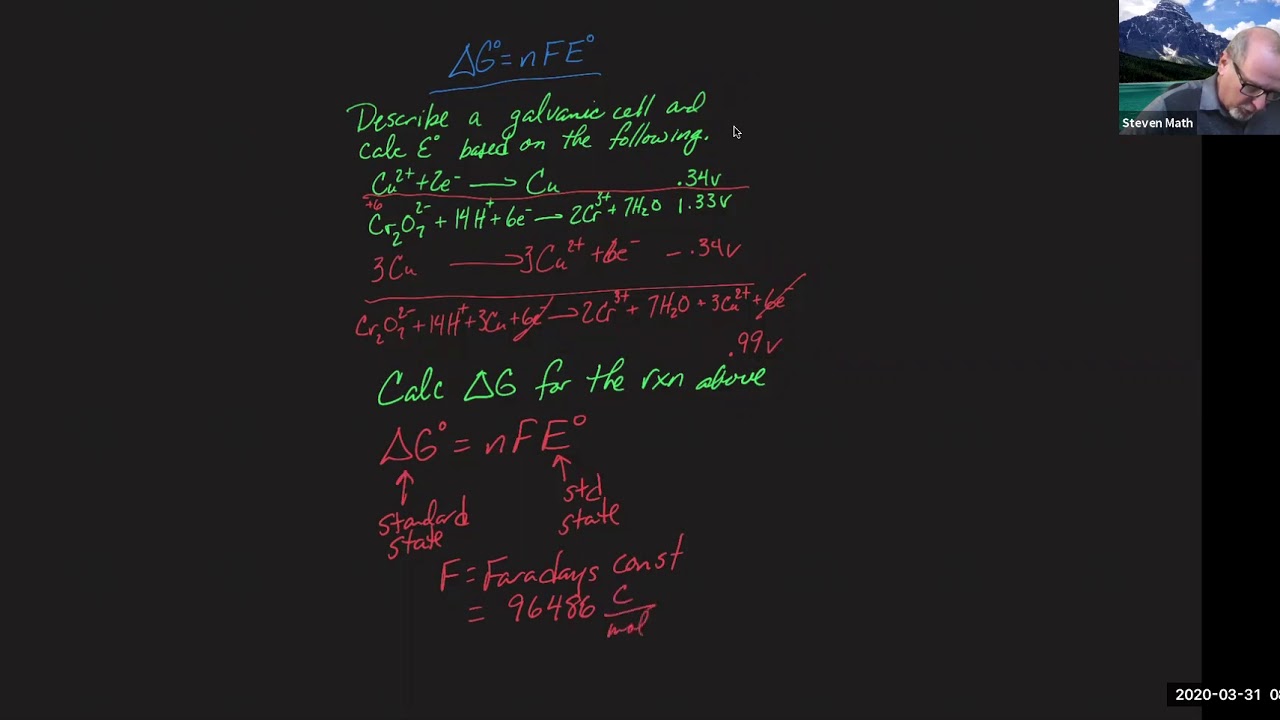 ΔG° = nFE°
Steven Math
Describe a galvanic cell and
calc ε° based on the following.
Cu²⁺ + 2e⁻ → Cu .34v
+6
Cr₂O₇²⁻ + 14H⁺ + 6e⁻ → 2Cr³⁺ + 7H₂O 1.33v
3Cu → 3Cu²⁺ + 6e⁻ - .34v
Cr₂O₇²⁻ + 14H⁺ + 3Cu + 6e⁻ → 2Cr³⁺ + 7H₂O + 3Cu²⁺ + 6e⁻
.99v
Calc ΔG for the rxn above
ΔG° = nFE°
↑ ↑
standard state
std state
F = Faradays const
= 96486 C/mol
2020-03-31 0